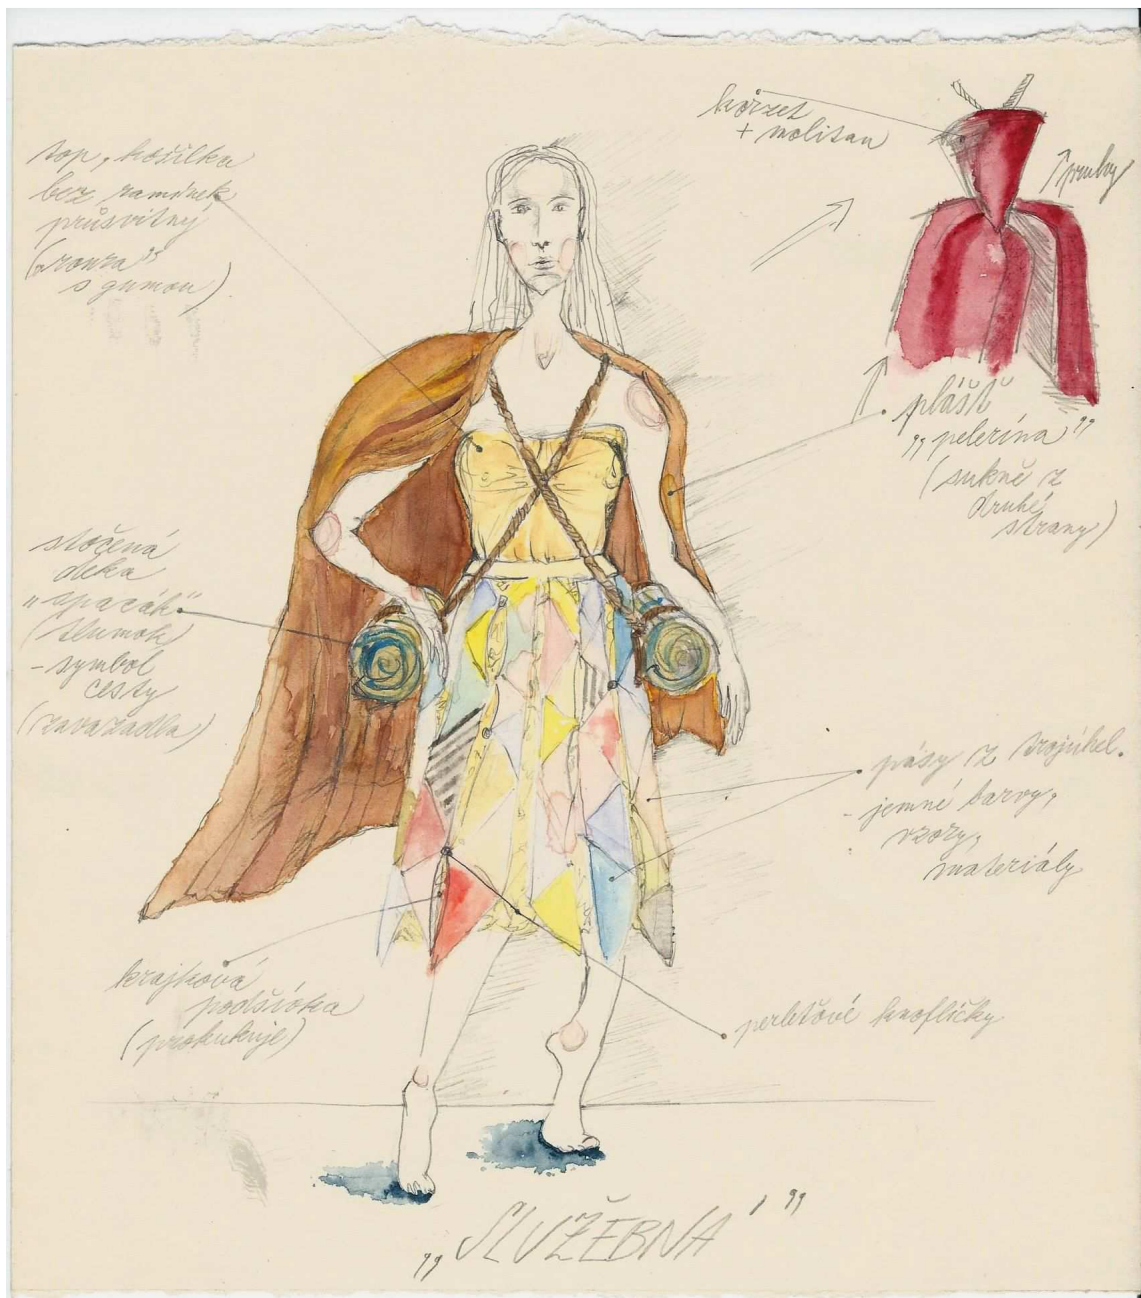 top, košilka
bez ramínek
průsvitný
("roura"
s gumou)
korzet
+ molitan
pruhy
plášť
"pelerína"
(sukně z
druhé
strany)
stočená
deka
"spacák"
(žlumok)
- symbol
cesty
(zavazadla)
pásy z trojúhel.
- jemné barvy,
vzory,
materiály
krajková
podšívka
(prokukuje)
perleťové knoflíčky
„SLUŽEBNÁ"